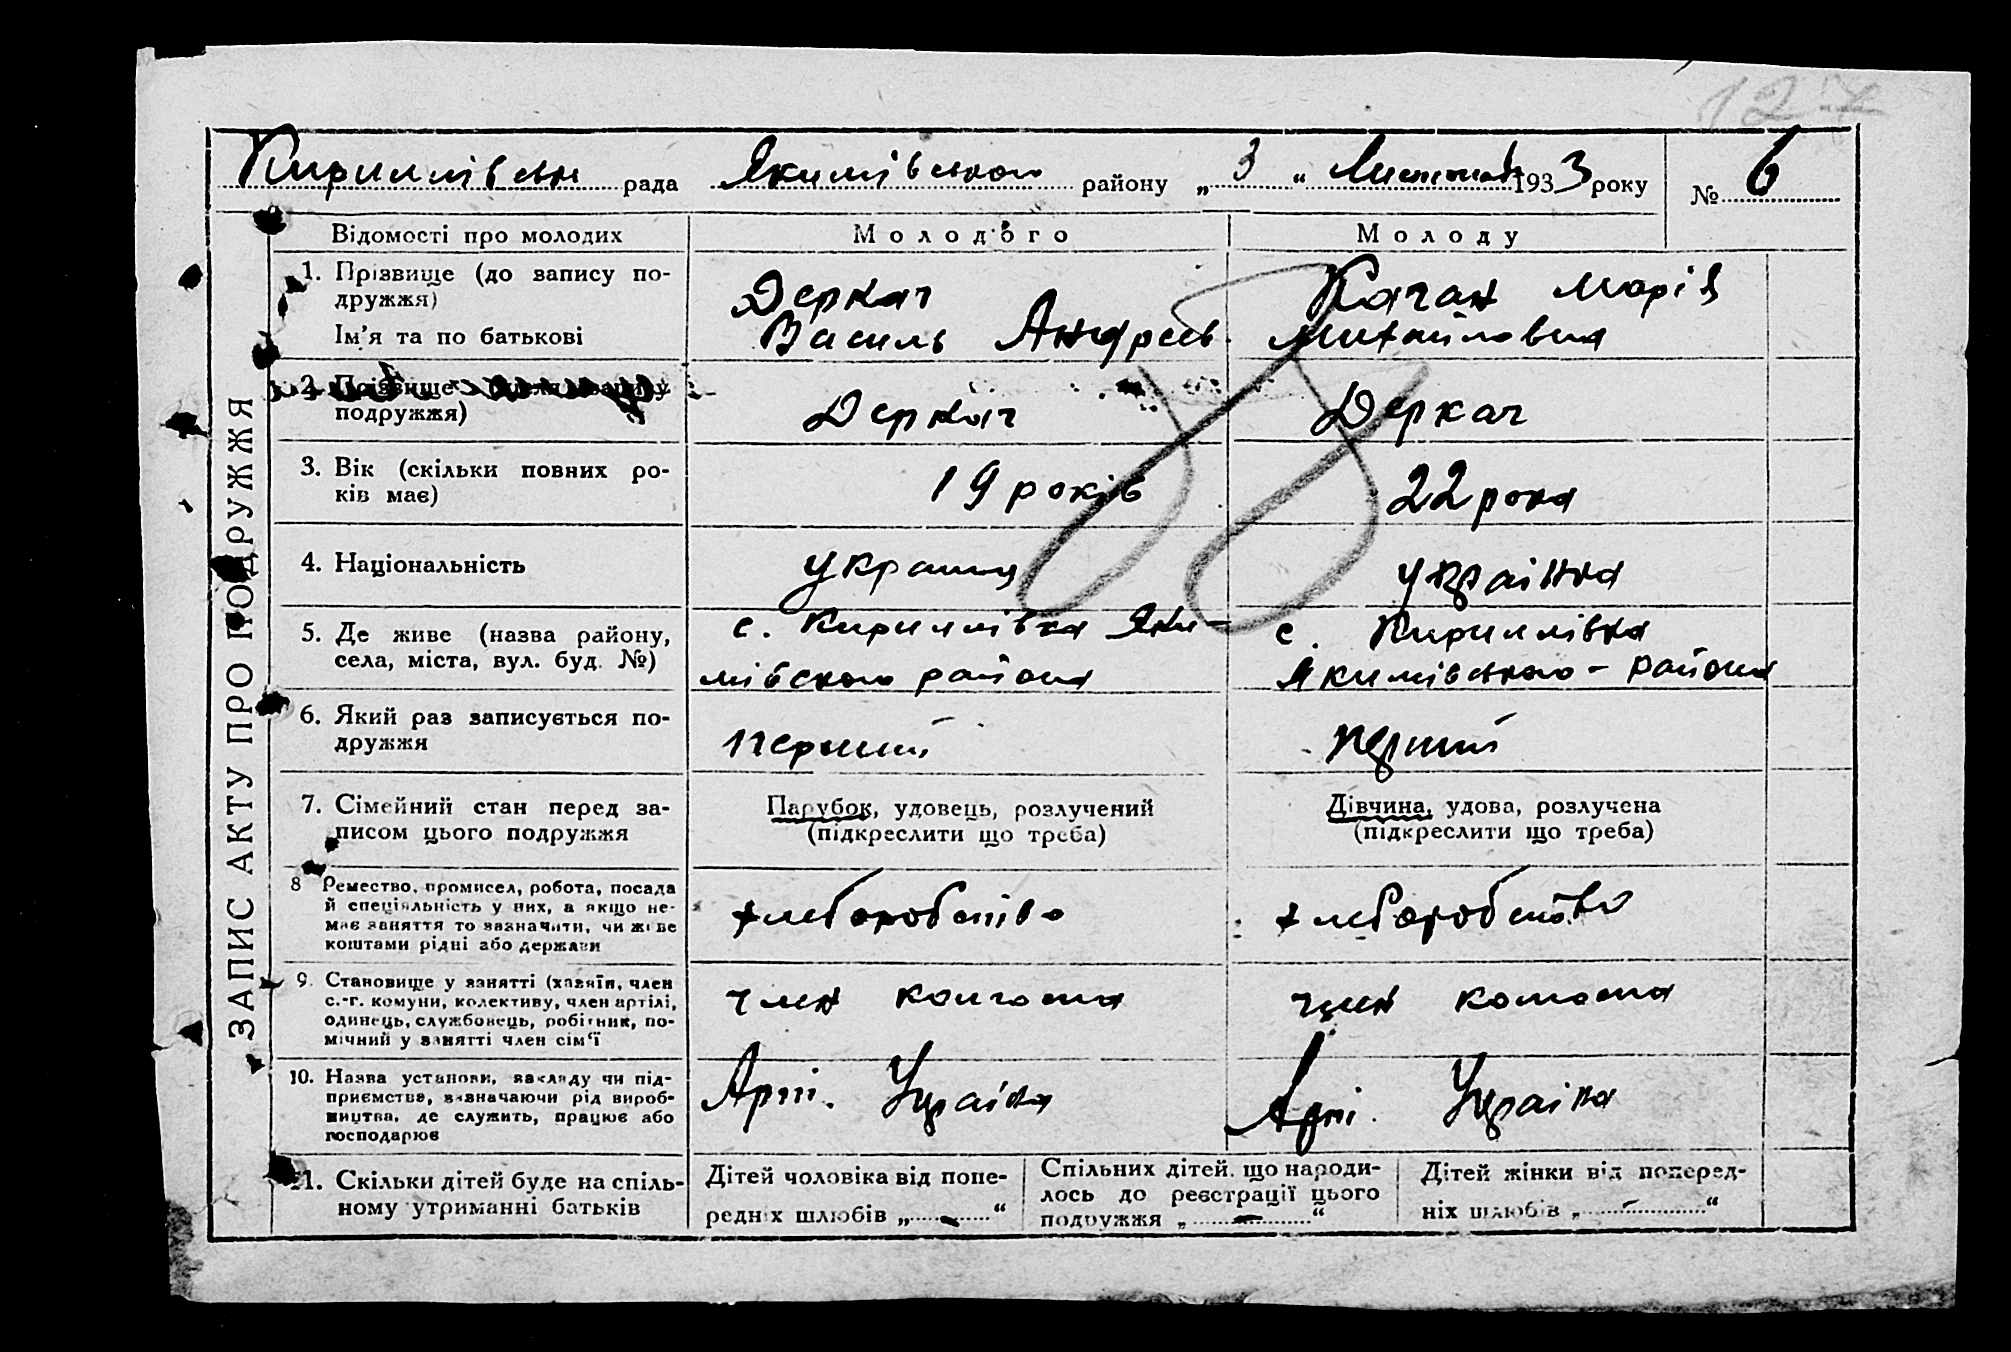 127
Кириллівськ рада Якимівского району „ 3 “ Листопад 1933 року № 6
ЗАПИС АКТУ ПРО ПОДРУЖЖЯ
Відомості про молодих Молодого Молоду
1. Прізвище (до запису по-
дружжя)
Ім'я та по батькові
Деркач
Василь Андреев.
Качан Марія
Михайловна
2. Прізвище (після запису
подружжя)
Деркач
Деркач
3. Вік (скільки повних ро-
ків має)
19 років
22 рока
4. Національність
українц
українка
5. Де живе (назва району,
села, міста, вул. буд. №)
с. Кириллівка Яки-
мівского района
с. Кириллівка
Якимівського - района
6. Який раз записується по-
дружжя
перший
перший
7. Сімейний стан перед за-
писом цього подружжя
Парубок, удовець, розлучений
(підкреслити що треба)
Дівчина, удова, розлучена
(підкреслити що треба)
8 Ремество, промисел, робота, посада
й спеціяльність у них, а якщо не-
має заняття то зазначити, чи живе
коштами рідні або держави
хлеборобство
хлеборобство
9. Становище у занятті (хазяїн, член
с.-г. комуни, колективу, член артілі,
одинець, службовець, робітник, по-
мічний у занятті член сім'ї
член колгоспа
член колгоспа
10. Назва установи, закладу чи під-
приємства, зазначаючи рід вироб-
ництва, де служить, працює або
господарює
Арті. Україна
Арті. Україна
11. Скільки дітей буде на спіль-
ному утриманні батьків
Дітей чоловіка від попе-
редніх шлюбів „ - “
Спільних дітей, що народи-
лось до реєстрації цього
подружжя „ - “
Дітей жінки від поперед-
ніх шлюбів „ - “